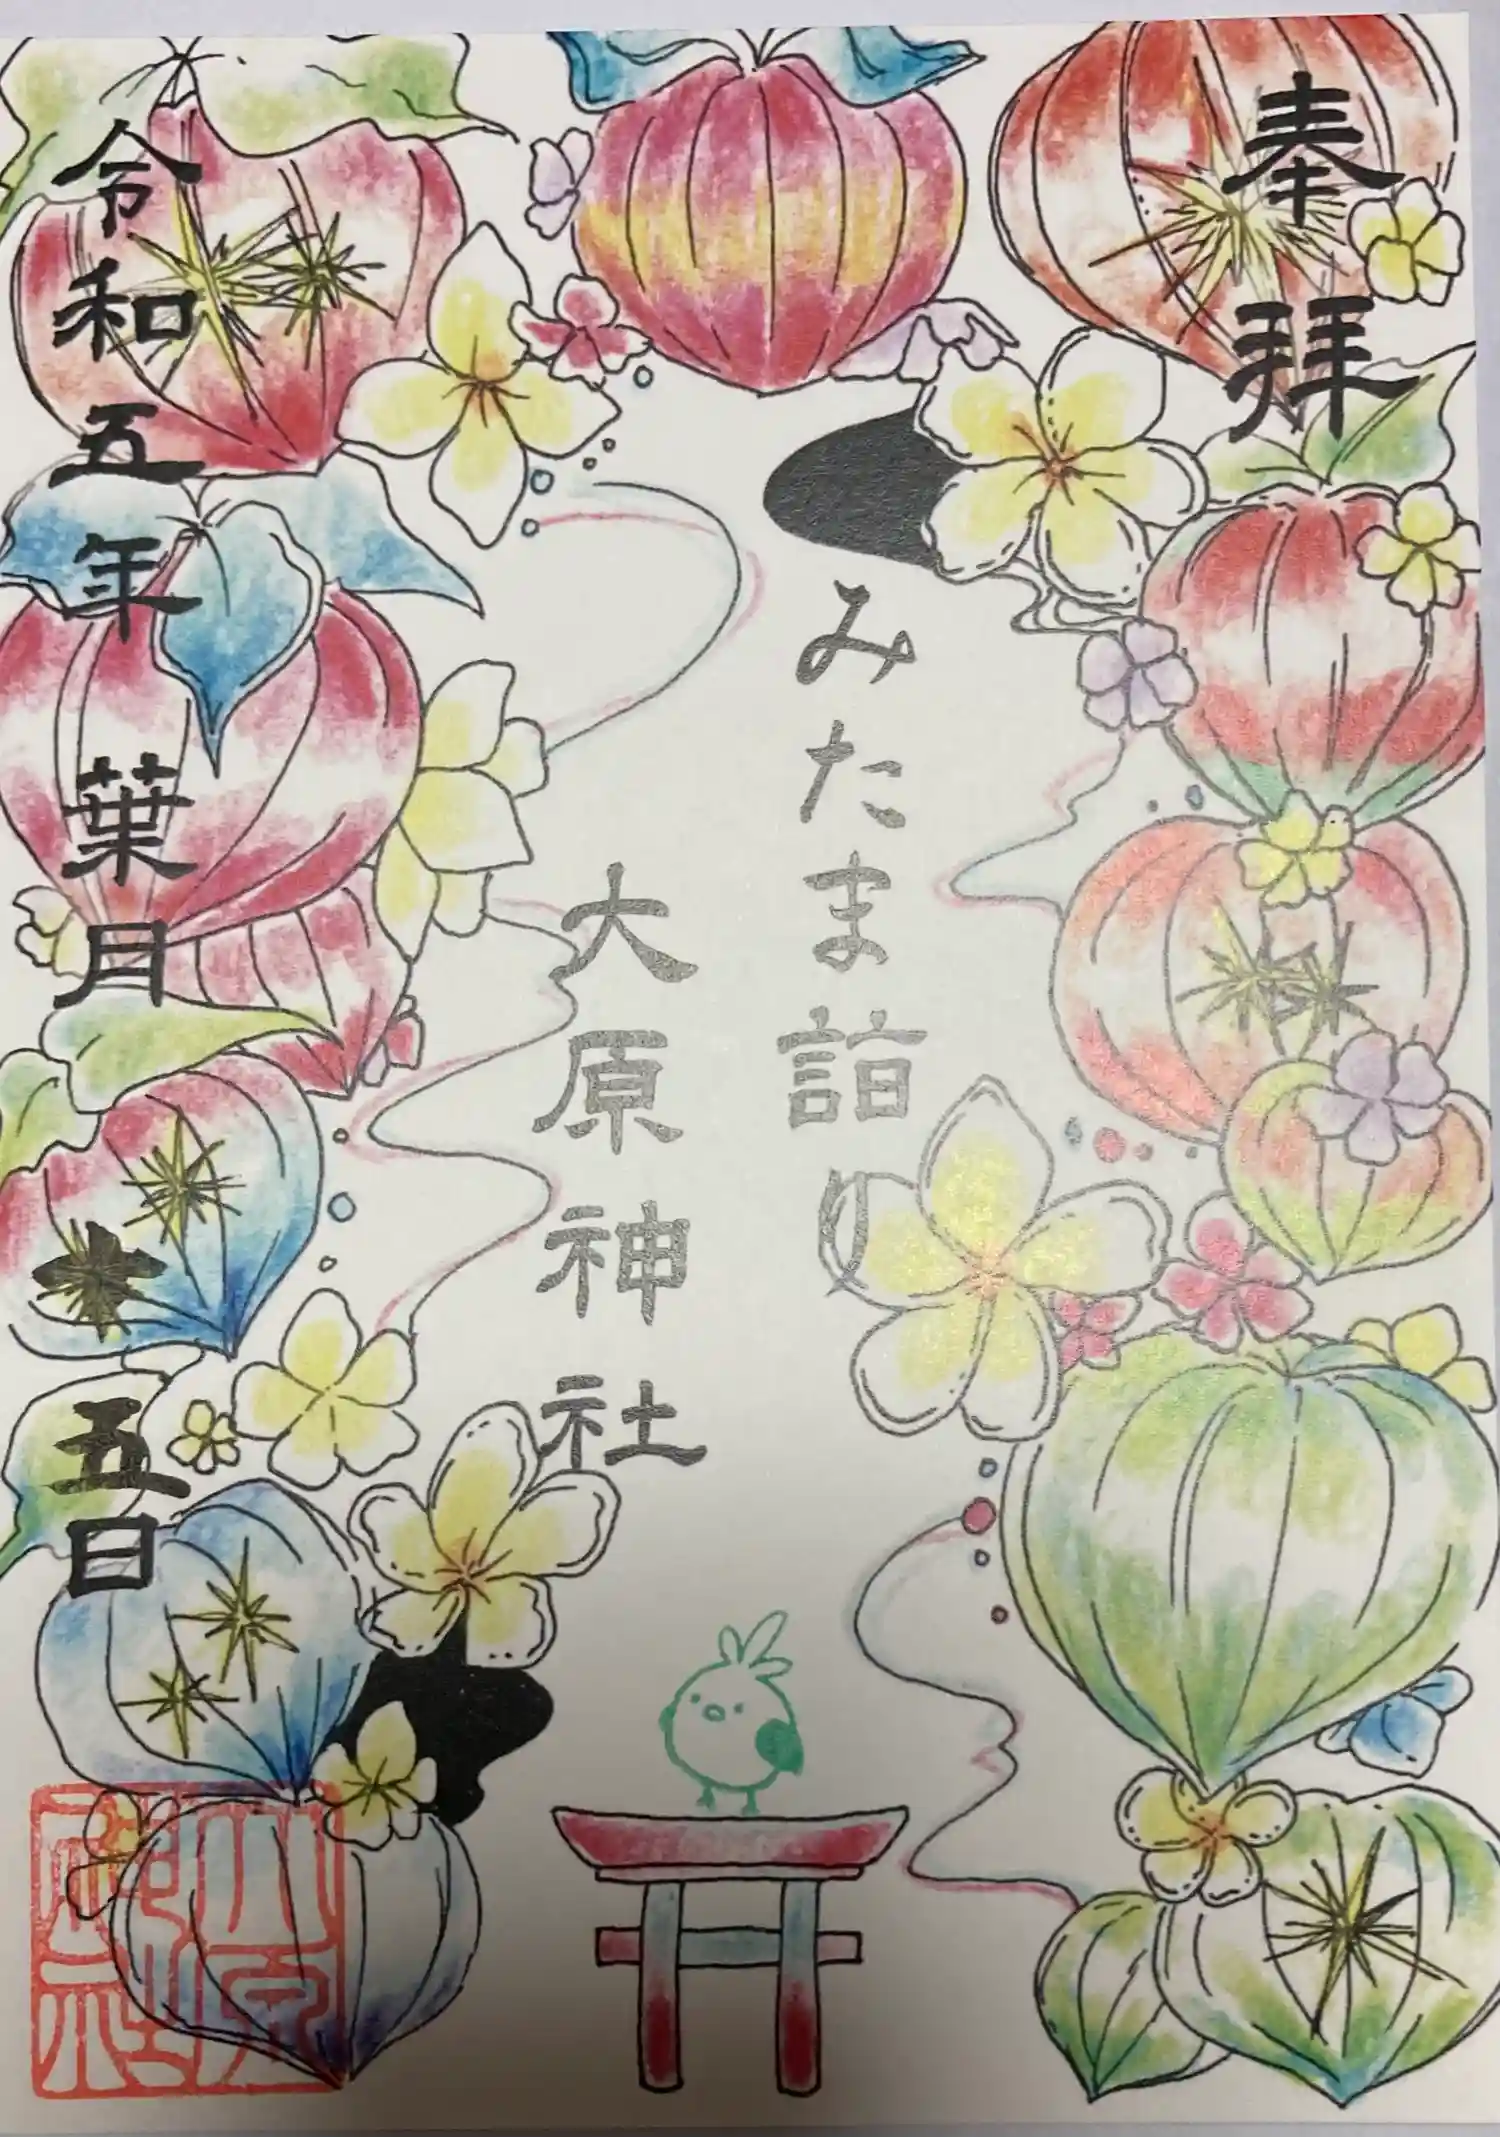 奉拝
みたま詣り
大原神社
令和五年葉月十五日
大原神社